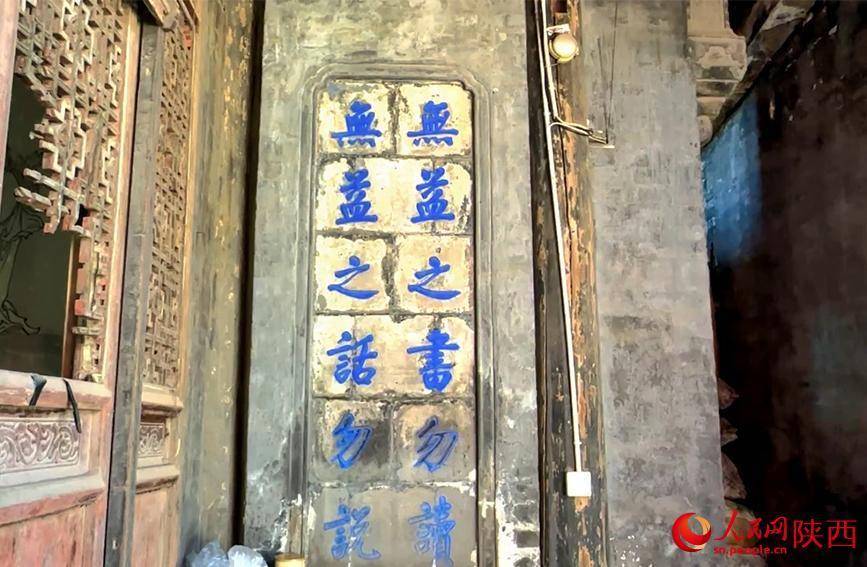 無益之書勿讀
無益之話勿說
人民网 陕西
sn.people.cn